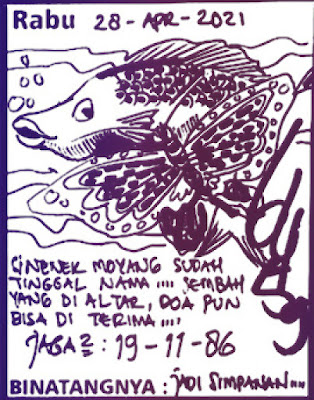 Rabu 28-APR-2021
NENEK MOYANG SUDAH
TINGGAL NAMA .... SEMBAH
YANG DI ALTAR, DOA PUN
BISA DI TERIMA ....
JAGA2 : 19-11-86
BINATANGNYA : JADI SIMPANAN ...